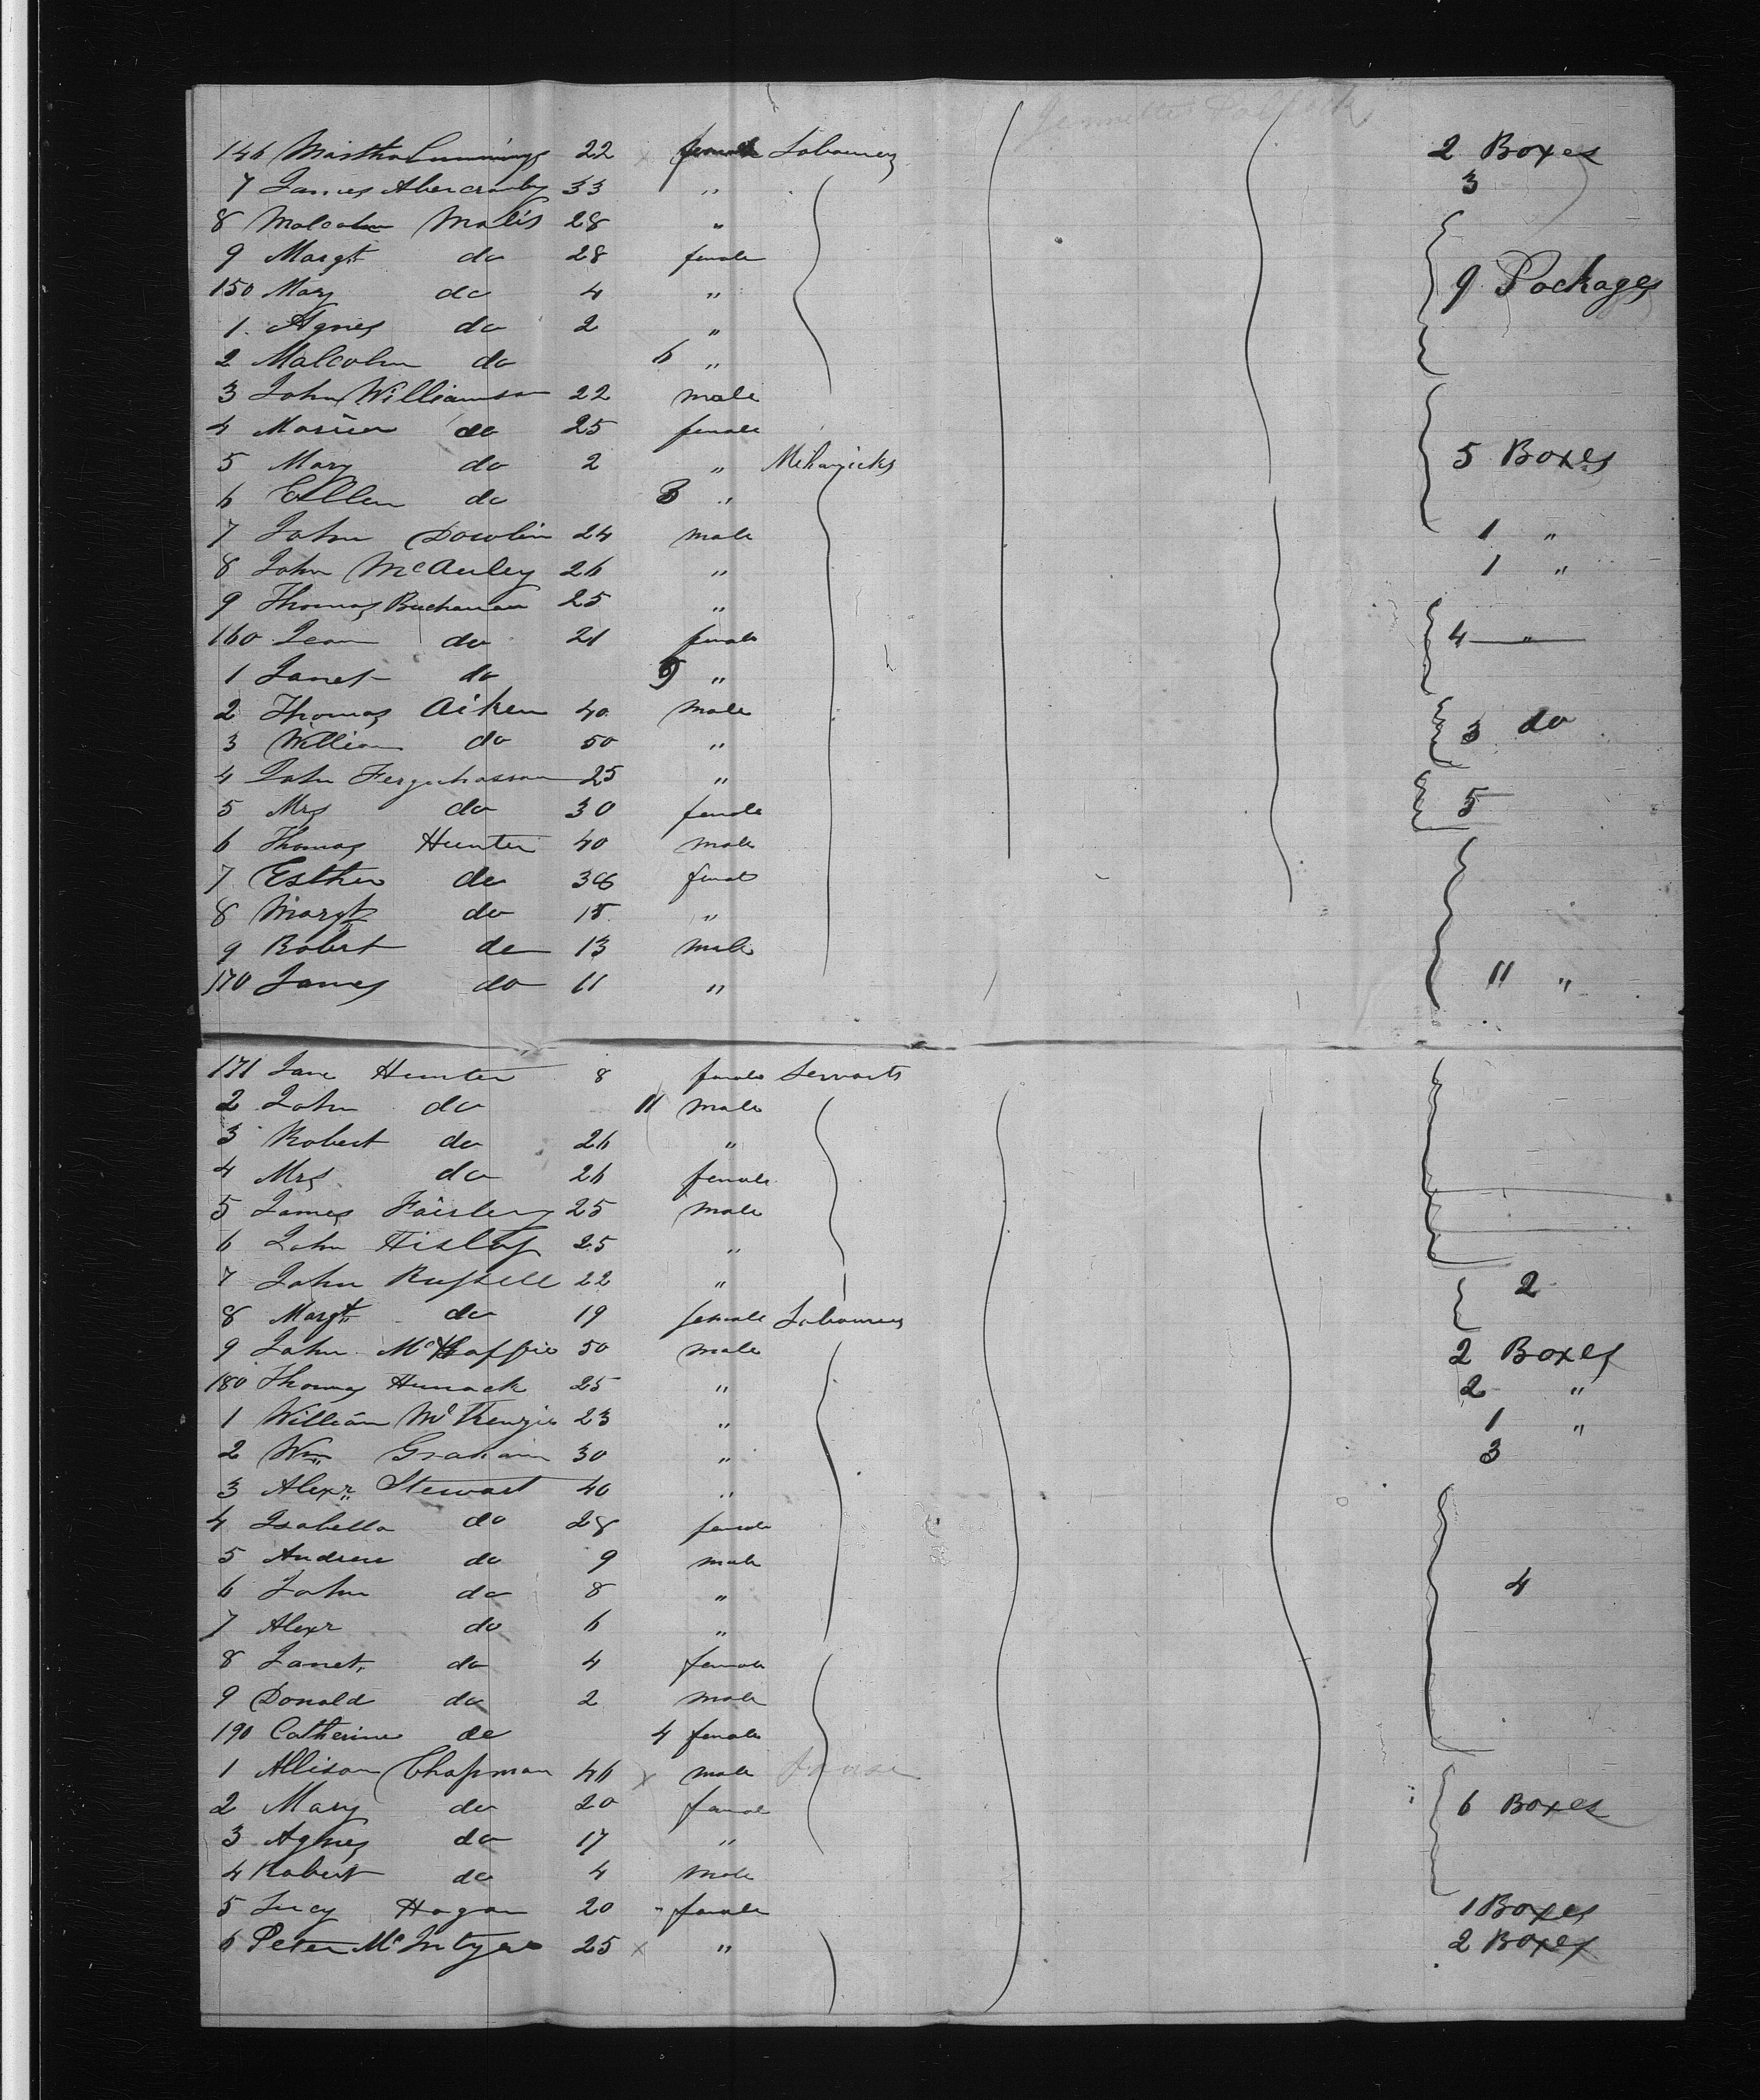 Jennette Pollock
146 Martha Cummings 22 x female Labourers 2 Boxes
7 James Abercromby 33 " 3
8 Malcolm Malis 28 "
9 Margt do 28 female 9 Packages
150 Mary do 4 "
1 Agnes do 2 "
2 Malcolm do 6 "
3 John Williamson 22 male
4 do 25 female
5 Mary do 2 " Mehanicks 5 Boxes
6 Ellen do 8 "
7 John Dowlin 24 male 1 "
8 John McAuley 26 " 1 "
9 Thomas Buchanan 25 "
160 Jean do 21 female 4 "
1 Janet do 9 "
2 Thomas Aiken 40 male
3 William do 50 " 3 do
4 John 25 "
5 Mrs do 30 female 5
6 Thomas Hunter 40 male
7 Esther do 36 female
8 Margt do 15 "
9 Robert do 13 male
170 James do 11 " 11 "
171 Jane Hunter 8 female Servants
2 John do 11 male
3 Robert do 26 "
4 Mrs do 26 female
5 James Fairley 25 male
6 John Hislop 25 "
7 John Russell 22 " 2
8 Margt do 19 female Labourers
9 John 50 male 2 Boxes
180 Thomas 25 " 2 "
1 William McKenzie 23 " 1 "
2 Wm Graham 30 " 3
3 Alexr Stewart 40 "
4 Isabella do 28 female
5 Andrew do 9 male
6 John do 8 " 4
7 Alexr do 6 "
8 Janet do 4 female
9 Donald do 2 male
190 Catherine do 4 female
1 Allison Chapman 46 x male
2 Mary do 20 female 6 Boxes
3 Agnes do 17 "
4 Robert do 4 male
5 Lucy Hogan 20 female 1 Boxes
6 Peter McIntyre 25 x " 2 Boxes